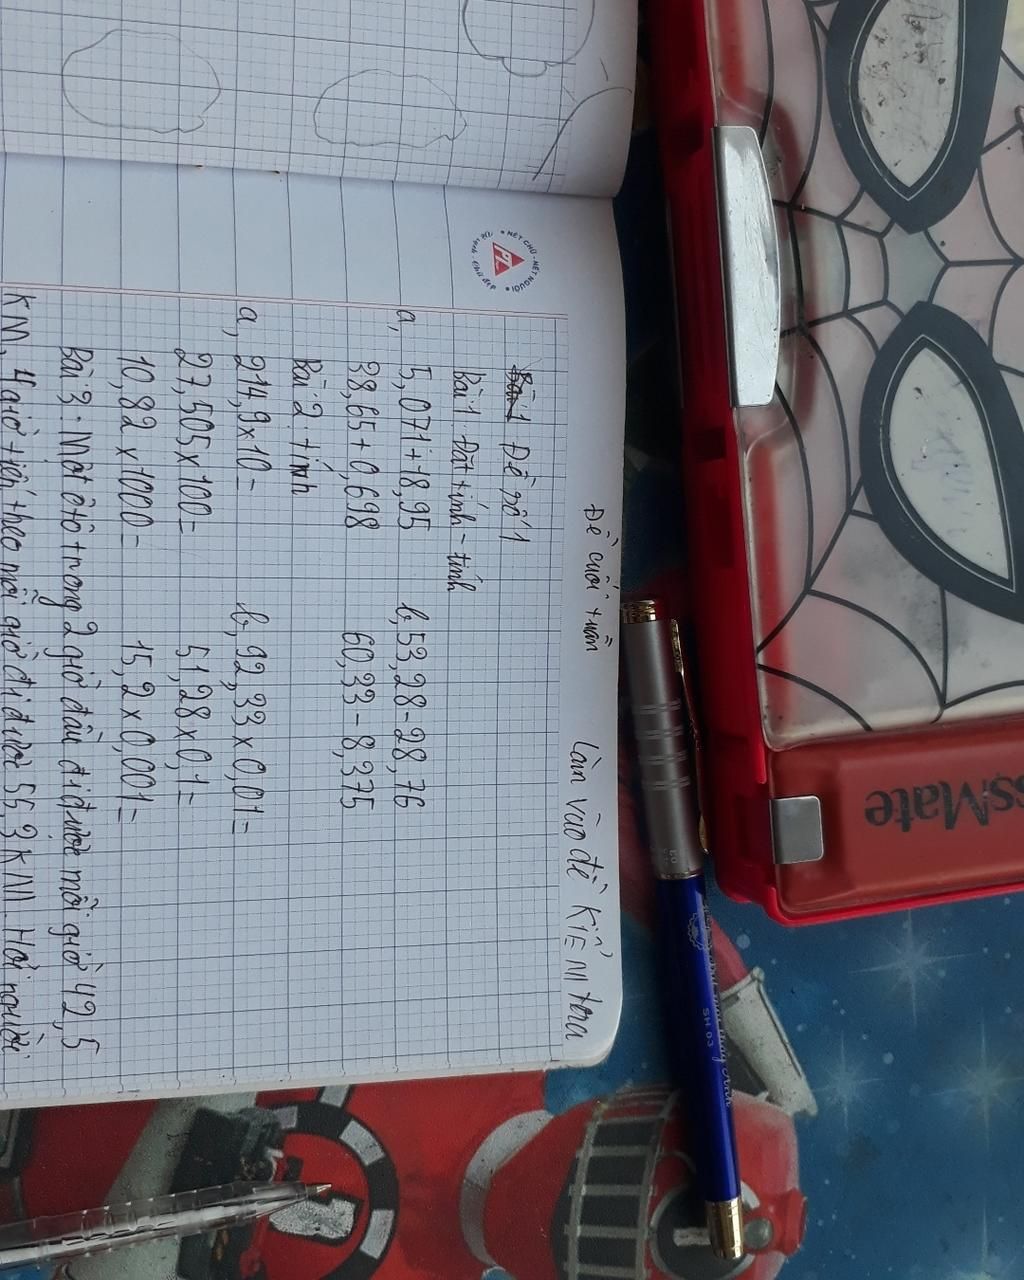 Đề cuối tuần Làm vào đề KIỂM tra
Bài 1 Đề số 1
Bài 1: Đặt tính - tính
a, 5,071 + 18,95 b, 53,28 - 28,76
38,65 + 0,698 60,33 - 8,375
Bài 2: tính
a, 214,9 x 10 = b, 92,33 x 0,01 =
27,505 x 100 = 51,28 x 0,1 =
10,82 x 1000 = 15,2 x 0,001 =
Bài 3: Một ô tô trong 2 giờ đầu đi được mỗi giờ 42,5
KM, 4 giờ tiếp theo mỗi giờ đi được 55,3 KM. Hỏi người
NÉT CHỮ - NẾT NGƯỜI
PL
ssMate
SH 03